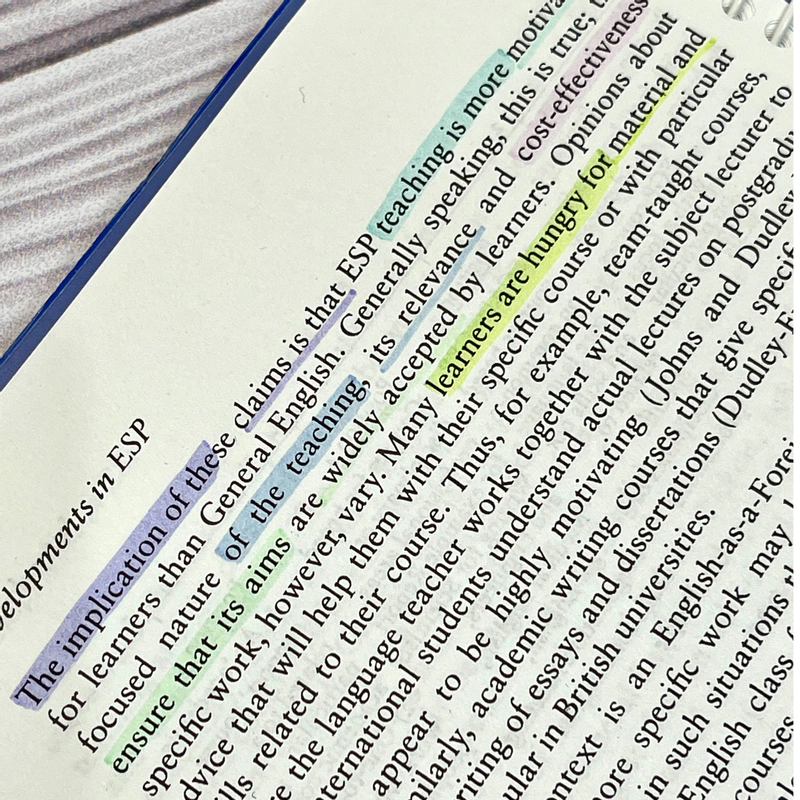 velopments in ESP
The implication of these claims is that ESP teaching is more motiva
for learners than General English. Generally speaking, this is true; t
focused nature of the teaching, its relevance and cost-effectiveness
ensure that its aims are widely accepted by learners. Opinions about
specific work, however, vary. Many learners are hungry for material and
dvice that will help them with their specific course or with particular
ills related to their course. Thus, for example, team-taught courses,
e the language teacher works together with the subject lecturer to
ternational students understand actual lectures on postgradu
appear to be highly motivating (Johns and Dudley
ilarly, academic writing courses that give specifi
riting of essays and dissertations (Dudley-E
ular in British universities.
ontext is an English-as-a-Forei
ore specific work may
in such situations
English class
courses